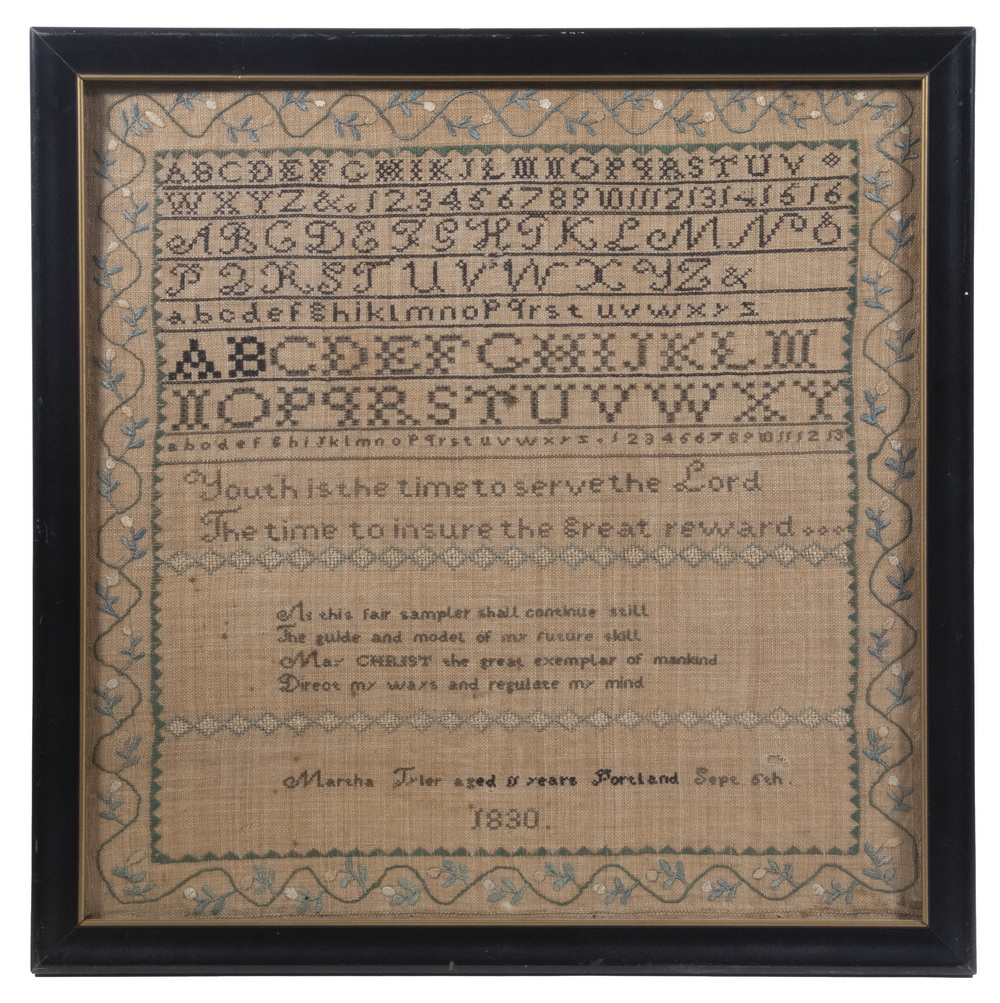 ABCDEFGHIKJLMNOPqRSTUV
WXYZ&.12345678910111213141516
ABCDEFGHIKLMNO
PQRSTUVWXYZ&
abcdefghiklmnopqrstuvwxyz
ABCDEFGHIJKLM
NOPqRSTUVWXY
abcdefghijklmnopqrstuvwxyz.12345678910111213
Youth is the time to serve the Lord
The time to insure the great reward
As this fair sampler shall continue still
The guide and model of my future skill
May CHRIST the great exemplar of mankind
Direct my ways and regulate my mind
Martha Tyler aged 11 years Portland Sept 5th.
1830.